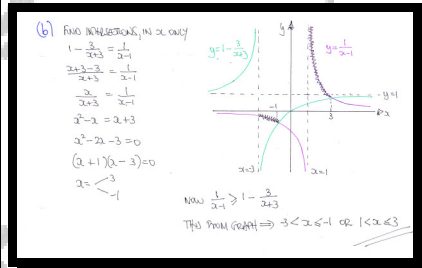 (b) FIND INTERSECTIONS, IN x ONLY
1 - 3/(x+3) = 1/(x-1)
(x+3-3)/(x+3) = 1/(x-1)
x/(x+3) = 1/(x-1)
x² - x = x + 3
x² - 2x - 3 = 0
(x + 1)(x - 3) = 0
x = < 3
-1
y
y = 1 - 3/(x+3)
y = 1/(x-1)
y=1
-1
3
x
x=-3
x=1
NOW 1/(x-1) ≥ 1 - 3/(x+3)
THUS FROM GRAPH ⇒ -3 < x ≤ -1 OR 1 < x ≤ 3